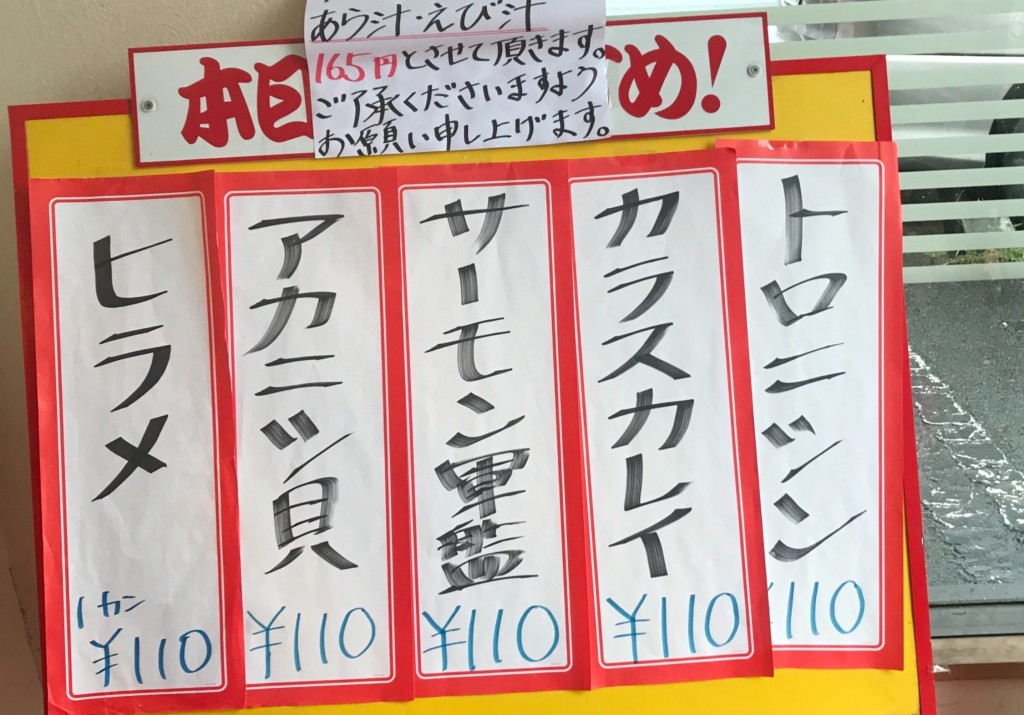 あら汁・えび汁
165円とさせて頂きます。
ご了承くださいますよう
お願い申し上げます。
本日
め!
トロニシン
¥110
カラスカレイ
¥110
サーモン軍艦
¥110
アカニシ貝
¥110
ヒラメ
1カン
¥110